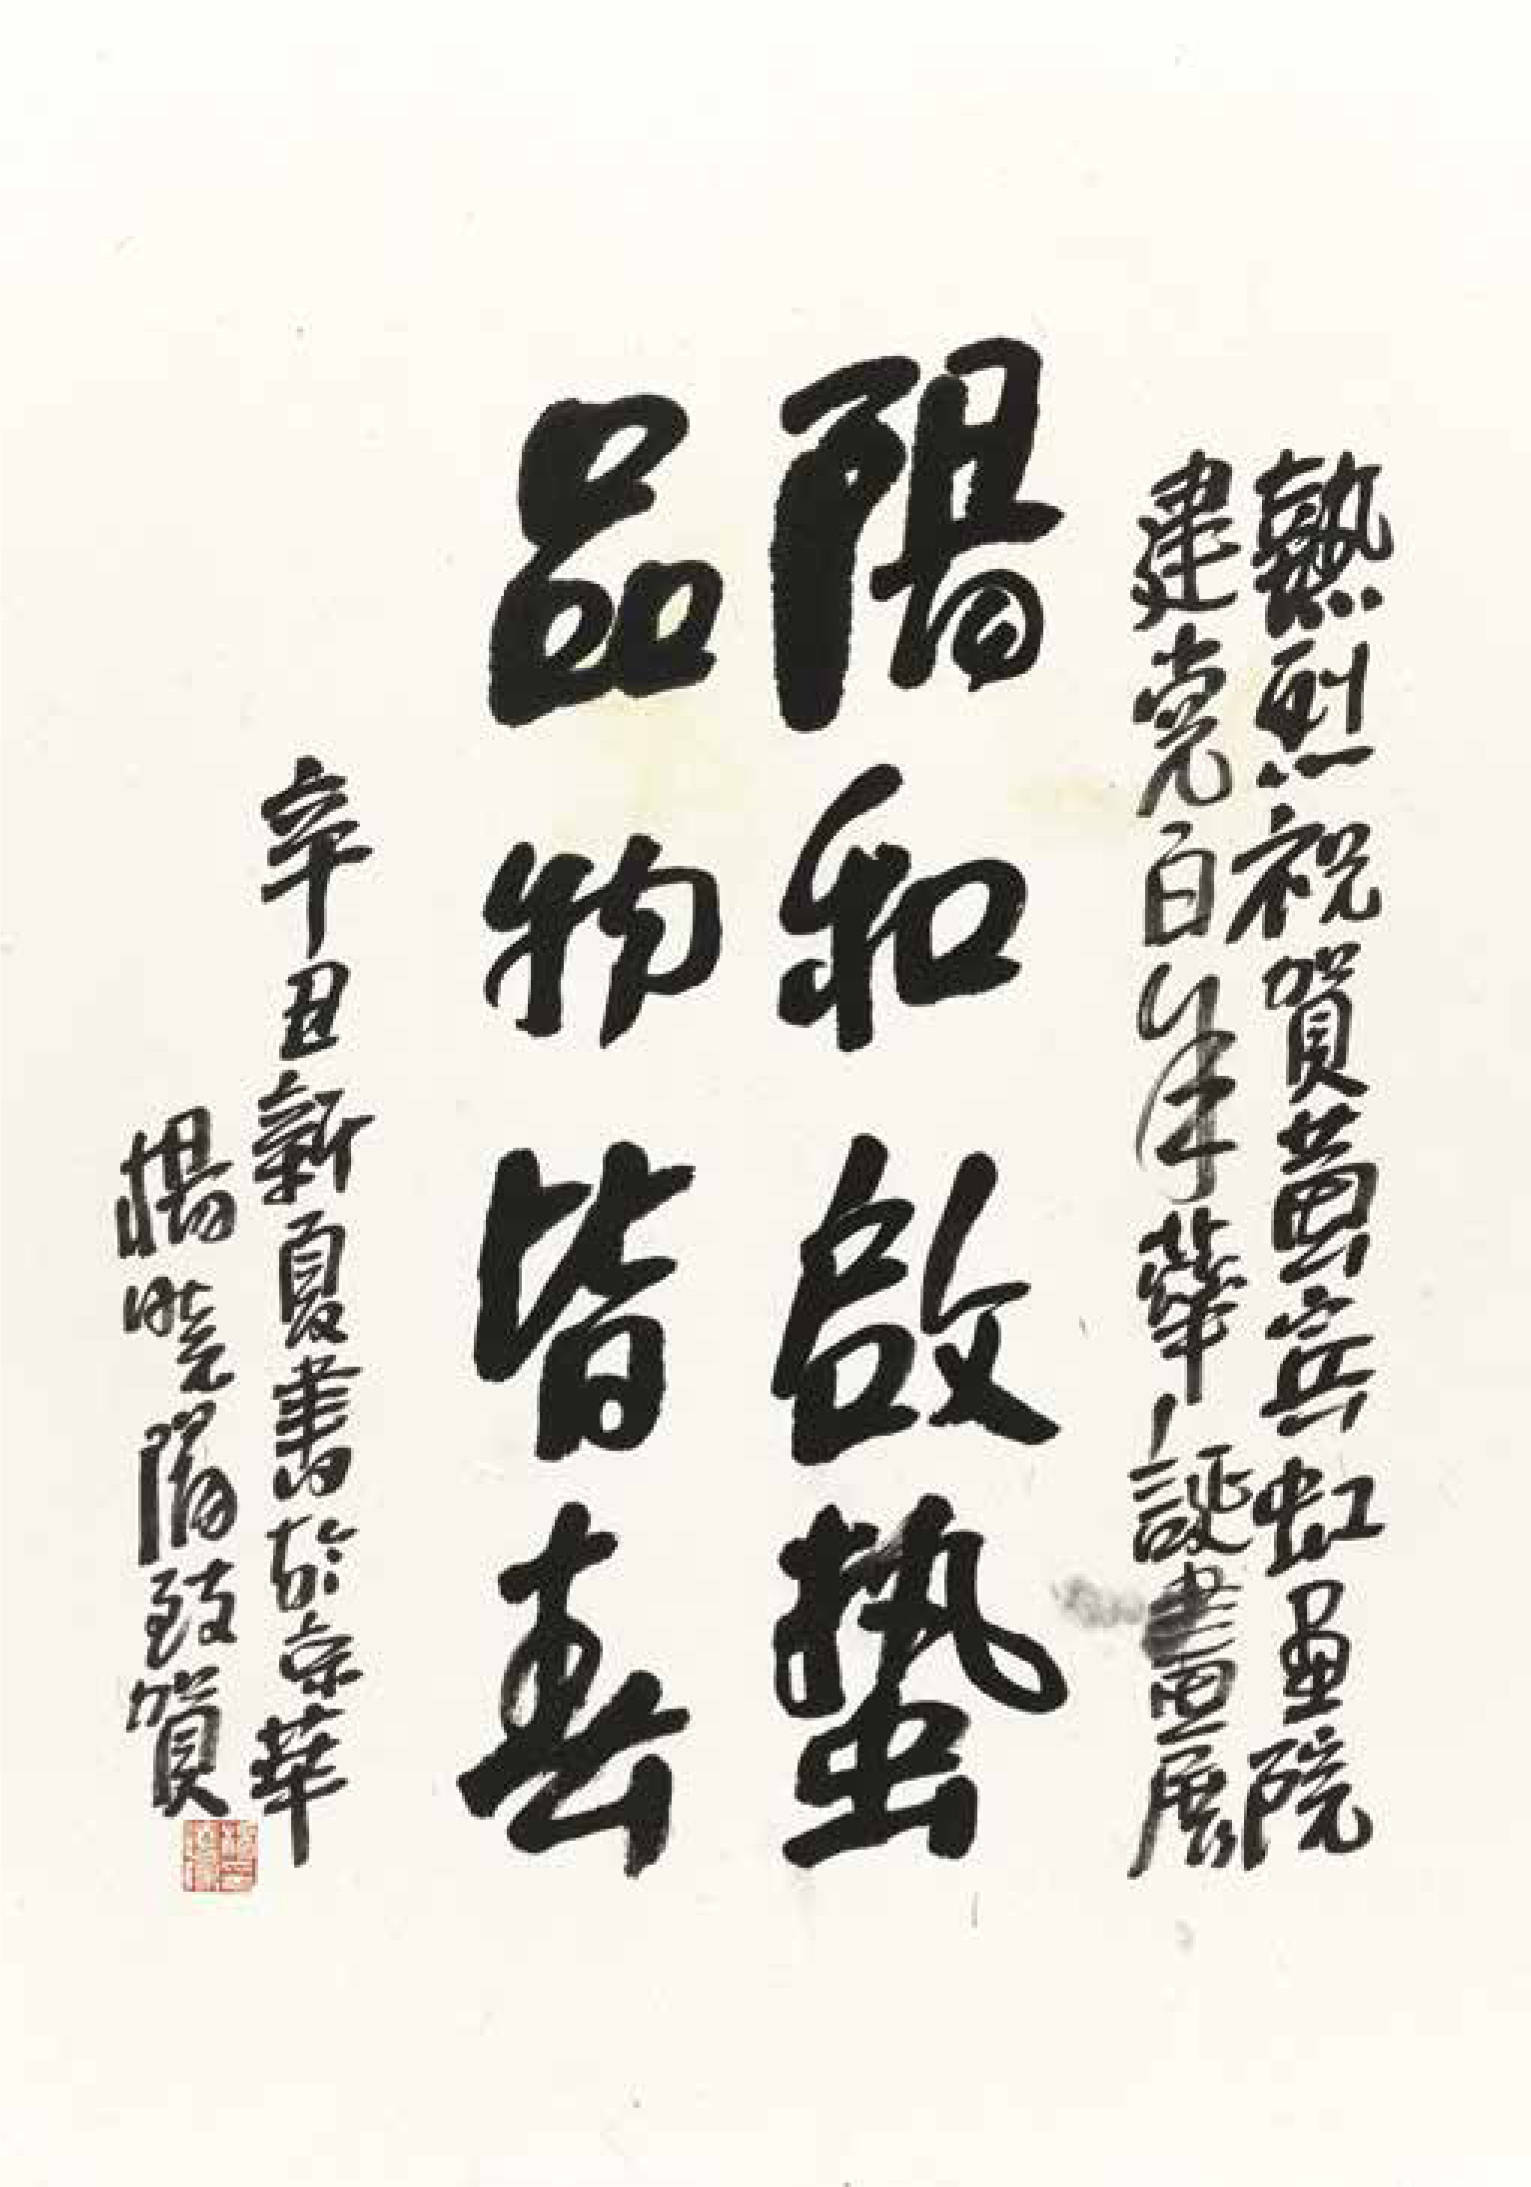 熱烈祝賀黃賓虹畫院
建党百年華誕書畫展
陽和啟蟄
品物皆春
辛丑新夏書於京華
楊曉陽致賀